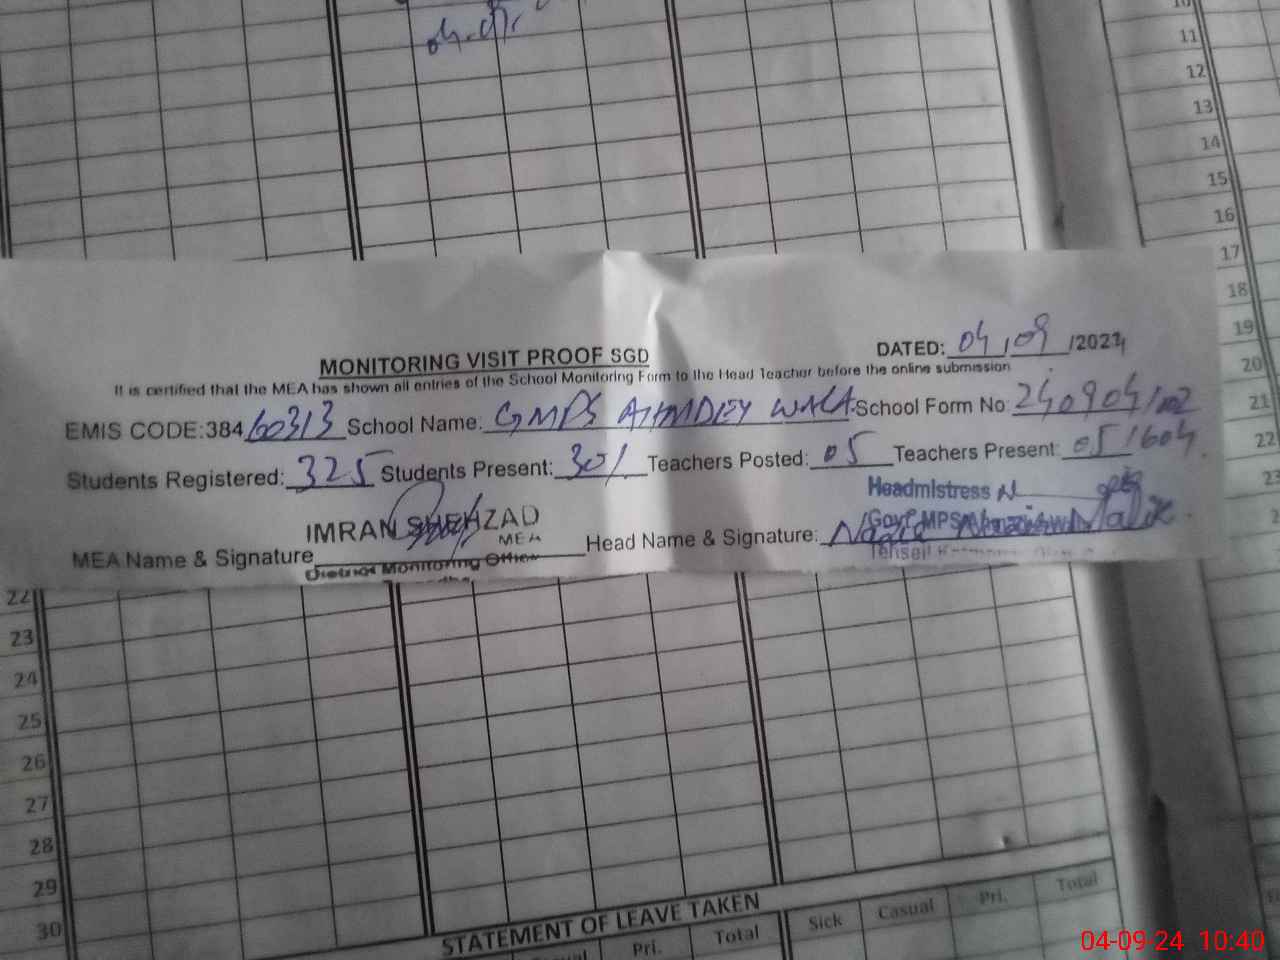 11
12
13
14
15
16
17
18
19
20
21
22
23
MONITORING VISIT PROOF SGD
DATED: 04/09/2024
It is certified that the MEA has shown all entries of the School Monitoring Form to the Head Teacher before the online submission
EMIS CODE:384 60313 School Name: GMPS AHMDEY WALA School Form No: 240904/002
Students Registered: 325 Students Present: 301 Teachers Posted: 05 Teachers Present: 05/604
IMRAN SHEHZAD
MEA
Headmistress
Govt MPS
MEA Name & Signature Head Name & Signature: Malik
District Monitoring Officer
Tehseil
22
23
24
25
26
27
28
29
30
STATEMENT OF LEAVE TAKEN
Casual Pri. Total Sick Casual Pri. Total
04-09-24 10:40